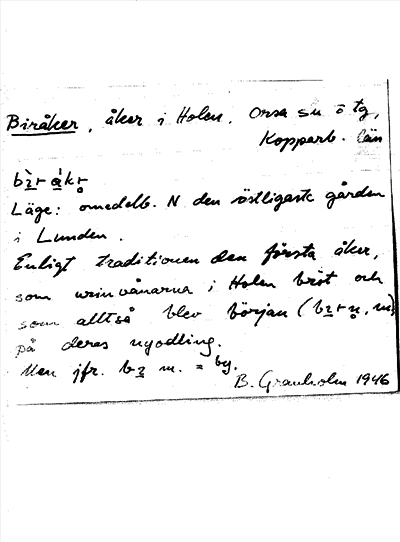 Biråker, åker i Holen, Orsa sn ö tg,
Kopparb. län
bìr ák r̥
Läge: omedelb. N den östligaste gården
i Lunden.
Enligt traditionen den första åker,
som urinvånarna i Holen bröt och
som alltså blev början (
på deras nyodling.
Men jfr. m. = by.
B. Granholm 1946